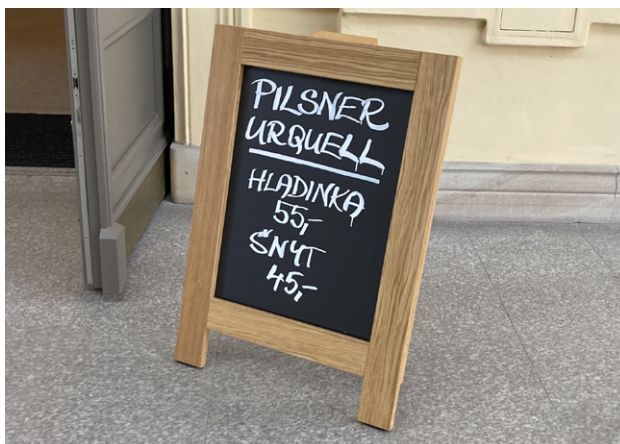 PILSNER
URQUELL
HLADINKA
55,-
ŠNYT
45,-